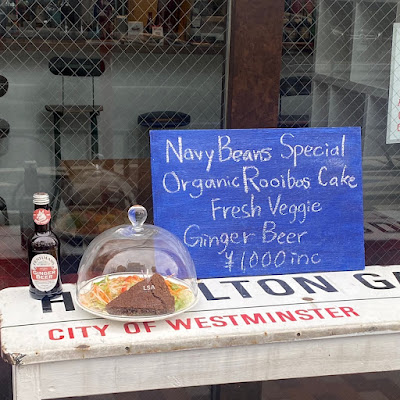 Navy Beans Special
Organic Rooibos Cake
Fresh Veggie
Ginger Beer
¥1000 inc
GINGER BEER
LSA
LTON GA
CITY OF WESTMINSTER